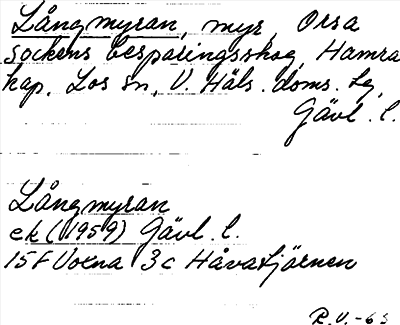 Långmyran, myr, Orsa
sockens besparingsskog, Hamra
kap. Los sn, V. Häls. doms. tg,
Gävl. l.
Långmyran
ek (1959) Gävl. l.
15F Voxna 3c Håvatjärnen
R.V. -63